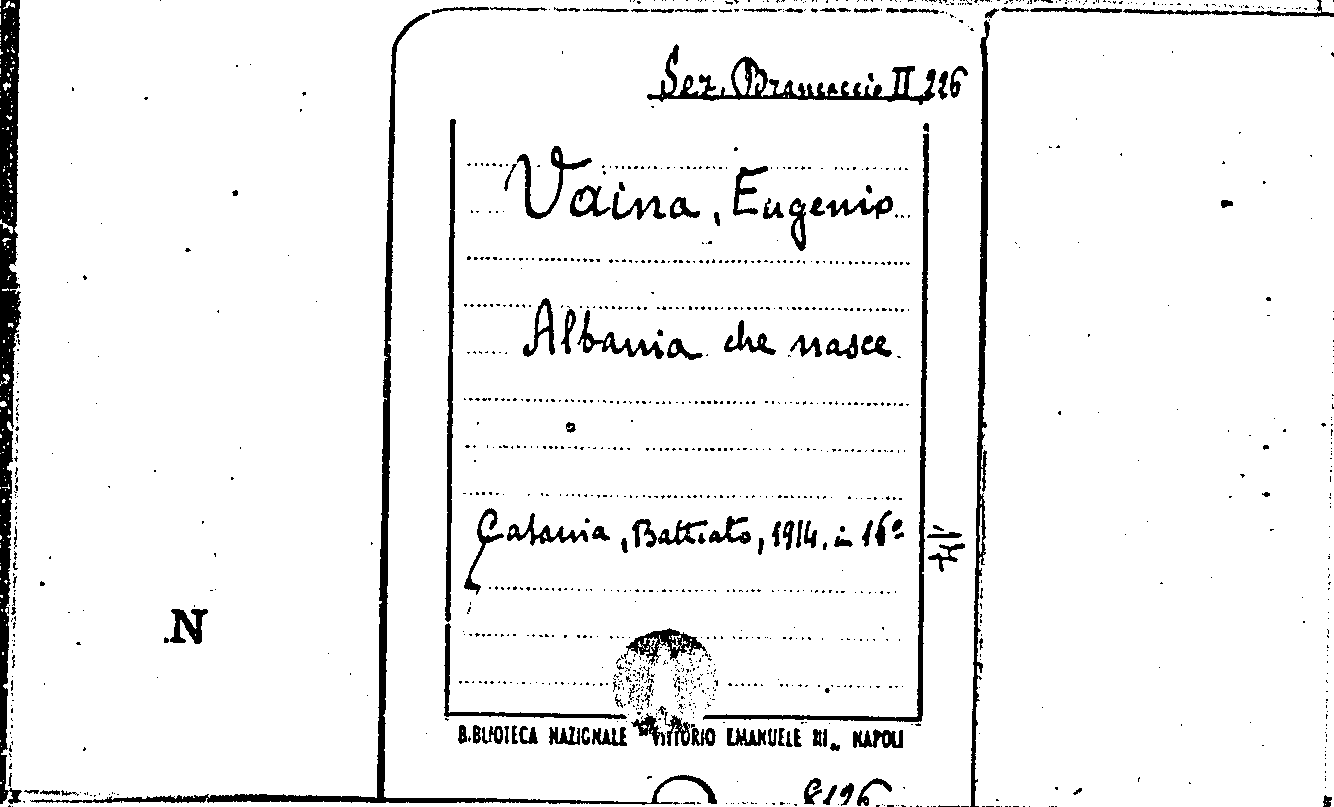 Sez. Brancaccio II 226
Vaina, Eugenio
Albania che nasce
Catania, Battiato, 1914. in 16º
N
B.BLIOTECA NAZIONALE "VITTORIO EMANUELE III„ NAPOLI